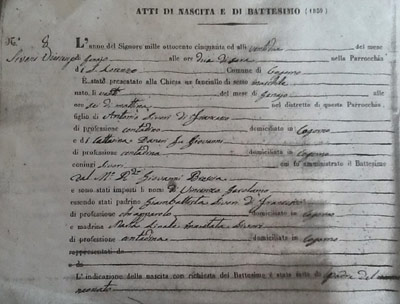 ATTI DI NASCITA E DI BATTESIMO (1850)
L'anno del Signore mille ottocento cinquanta ed alli ventidue del mese
Sivori Vincenzo di genajo alle ore due di sera nella Parrocchia
di S. Lorenzo Comune di Cogorno
È stato presentato alla Chiesa un fanciullo di sesso maschile
nato, li venti del mese di genajo alle
ore sei di mattina nel distretto di questa Parrocchia
figlio di Antonio Sivori di Francesco
di professione contadino domiciliato in Cogorno
e di Catterina fu Giovanni
di professione contadina domiciliata in Cogorno
coniugi Sivori cui fu amministrato il Battesimo
dal M. R. Giovanni
e sono stati imposti li nomi di Vincenzo Gerolamo
essendo stati padrino Giambattista Sivori di Francesco
di professione domiciliato in Cogorno
e madrina Sivori
di professione contadina domiciliata in Cogorno
rappresentati da
e da
L'indicazione della nascita con richiesta del Battesimo è stata fatta dal padre del
neonato